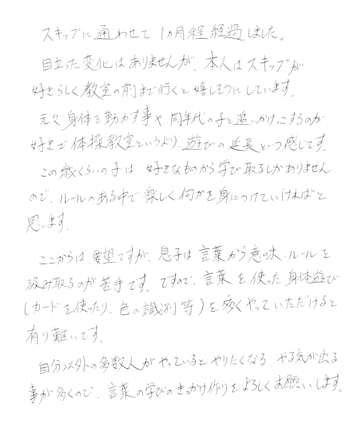 スキップに通わせて1ヵ月程経過しました。
目立った変化はありませんが、本人はスキップが
好きらしく教室の前まで行くと嬉しそうにしています。
元々身体を動かす事や同年代の子と追いかけっこするのが
好きで体操教室というより、遊びの延長という感じです。
この歳くらいの子は好きなものから学び取るしかありません
ので、ルールのある中で楽しく何かを身につけていければと
思います。
ここからは要望ですが、息子は言葉から意味、ルールを
汲み取るのが苦手です。ですので、言葉を使った身体遊び
(カードを使ったり、色の識別等)を多くやっていただけると
有り難いです。
自分以外の多数人がやっているとやりたくなる、やる気が出る
事が多くので、言葉の学びのきっかけ作りをよろしくお願いします。